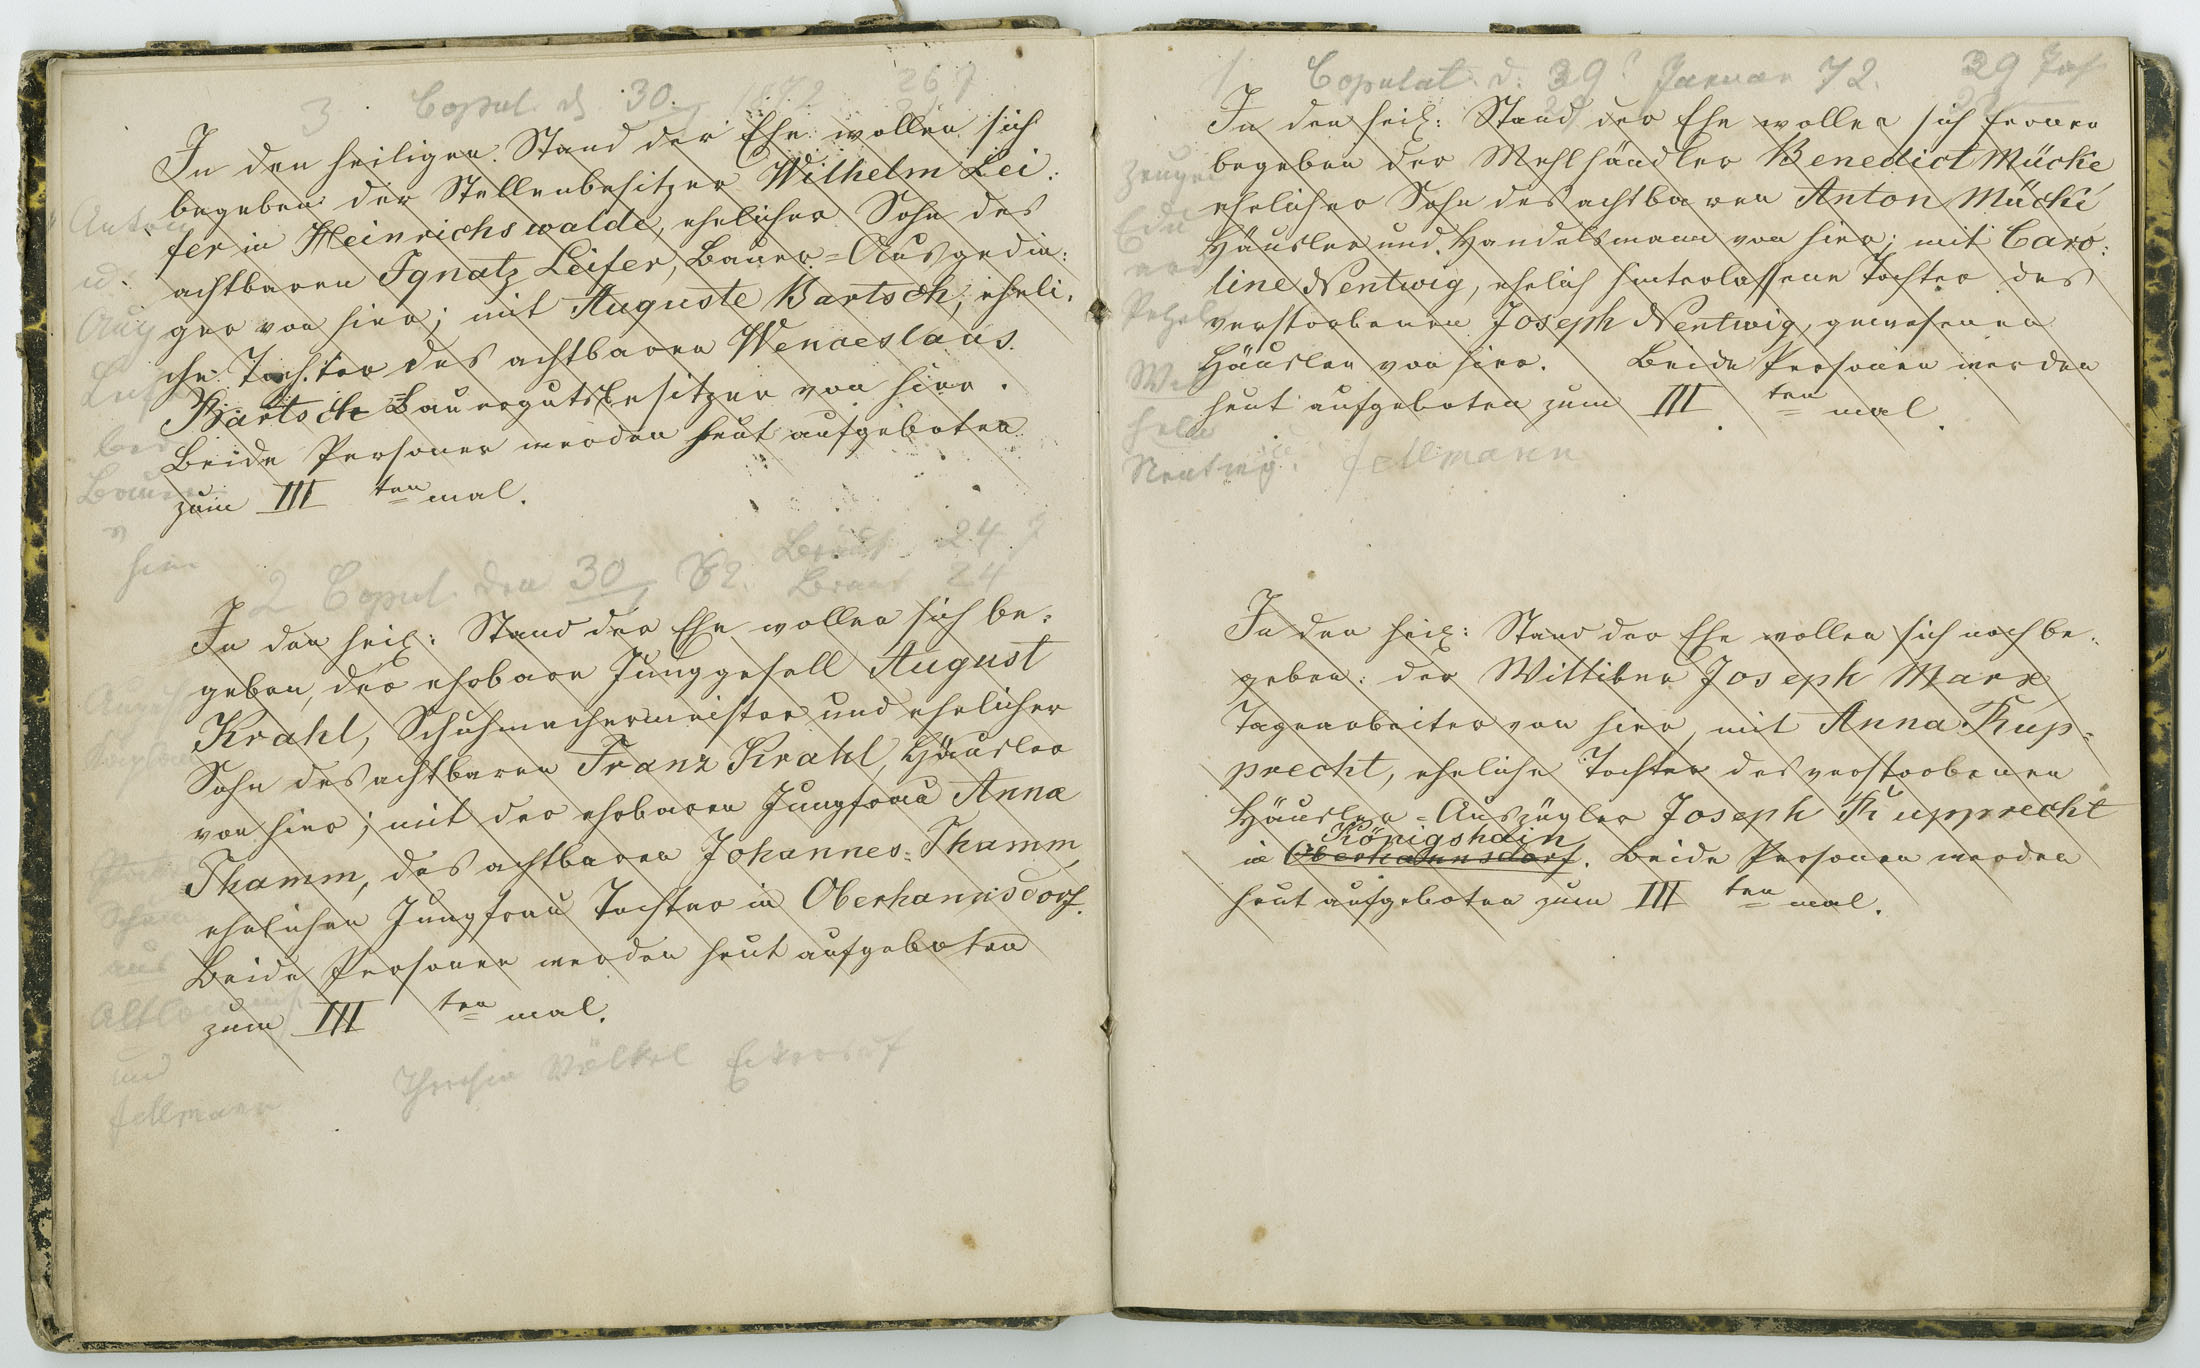 3. Copul. d. 30. 1872 26 J
In den heiligen Stand der Ehe wollen sich
begeben der Stellenbesitzer Wilhelm Lei:
fer in Heinrichswalde, ehelicher Sohn des
achtbaren Ignatz Leifer, Bauer=Ausgedin:
ger von hier; mit Auguste Bartsch, eheli:
che Tochter des achtbaren Wenceslaus
Bartsch Bauergutsbesitzer von hier.
Beide Personen werden heut aufgeboten
zum III ten mal.
Anton
u.
Aug
bei
hier
2 Copul. den 30 72. Braut 24
In den heil: Stand der Ehe wollen sich be:
geben, der ehrbare Junggesell August
Krahl, Schuhmachermeister und ehelicher
Sohn des achtbaren Franz Krahl, Häusler
von hier; mit der ehrbaren Jungfrau Anna
Thamm, des achtbaren Johannes Thamm,
ehelichen Jungfrau Tochter in Oberhannsdorf.
Beide Personen werden heut aufgeboten
zum III ten mal.
aus
und
Fellmann
Völkel Eckersdorf
1 Copulat. d. 29 Januar 72. 29 Jah
In den heil: Stand der Ehe wollen sich ferner
begeben der Mehlhändler Benedict Mücke
ehelicher Sohn des achtbaren Anton Mücke
Häusler und Handelsmann von hier; mit Caro:
line Nentwig, ehelich hinterlassene Tochter des
verstorbenen Joseph Nentwig, gewesenen
Häusler von hier. Beide Personen werden
heut aufgeboten zum III ten mal.
Zeugen
Edu
ard
Wil
helm
Nentwig. Fellmann
In den heil: Stand der Ehe wollen sich noch be:
geben: der Wittiber Joseph Marx
Tagearbeiter von hier, mit Anna Rup=
precht, eheliche Tochter des verstorbenen
Häusler=Auszügler Joseph Rupprecht
Königshain
in Oberhannsdorf. Beide Personen werden
heut aufgeboten zum III ten mal.